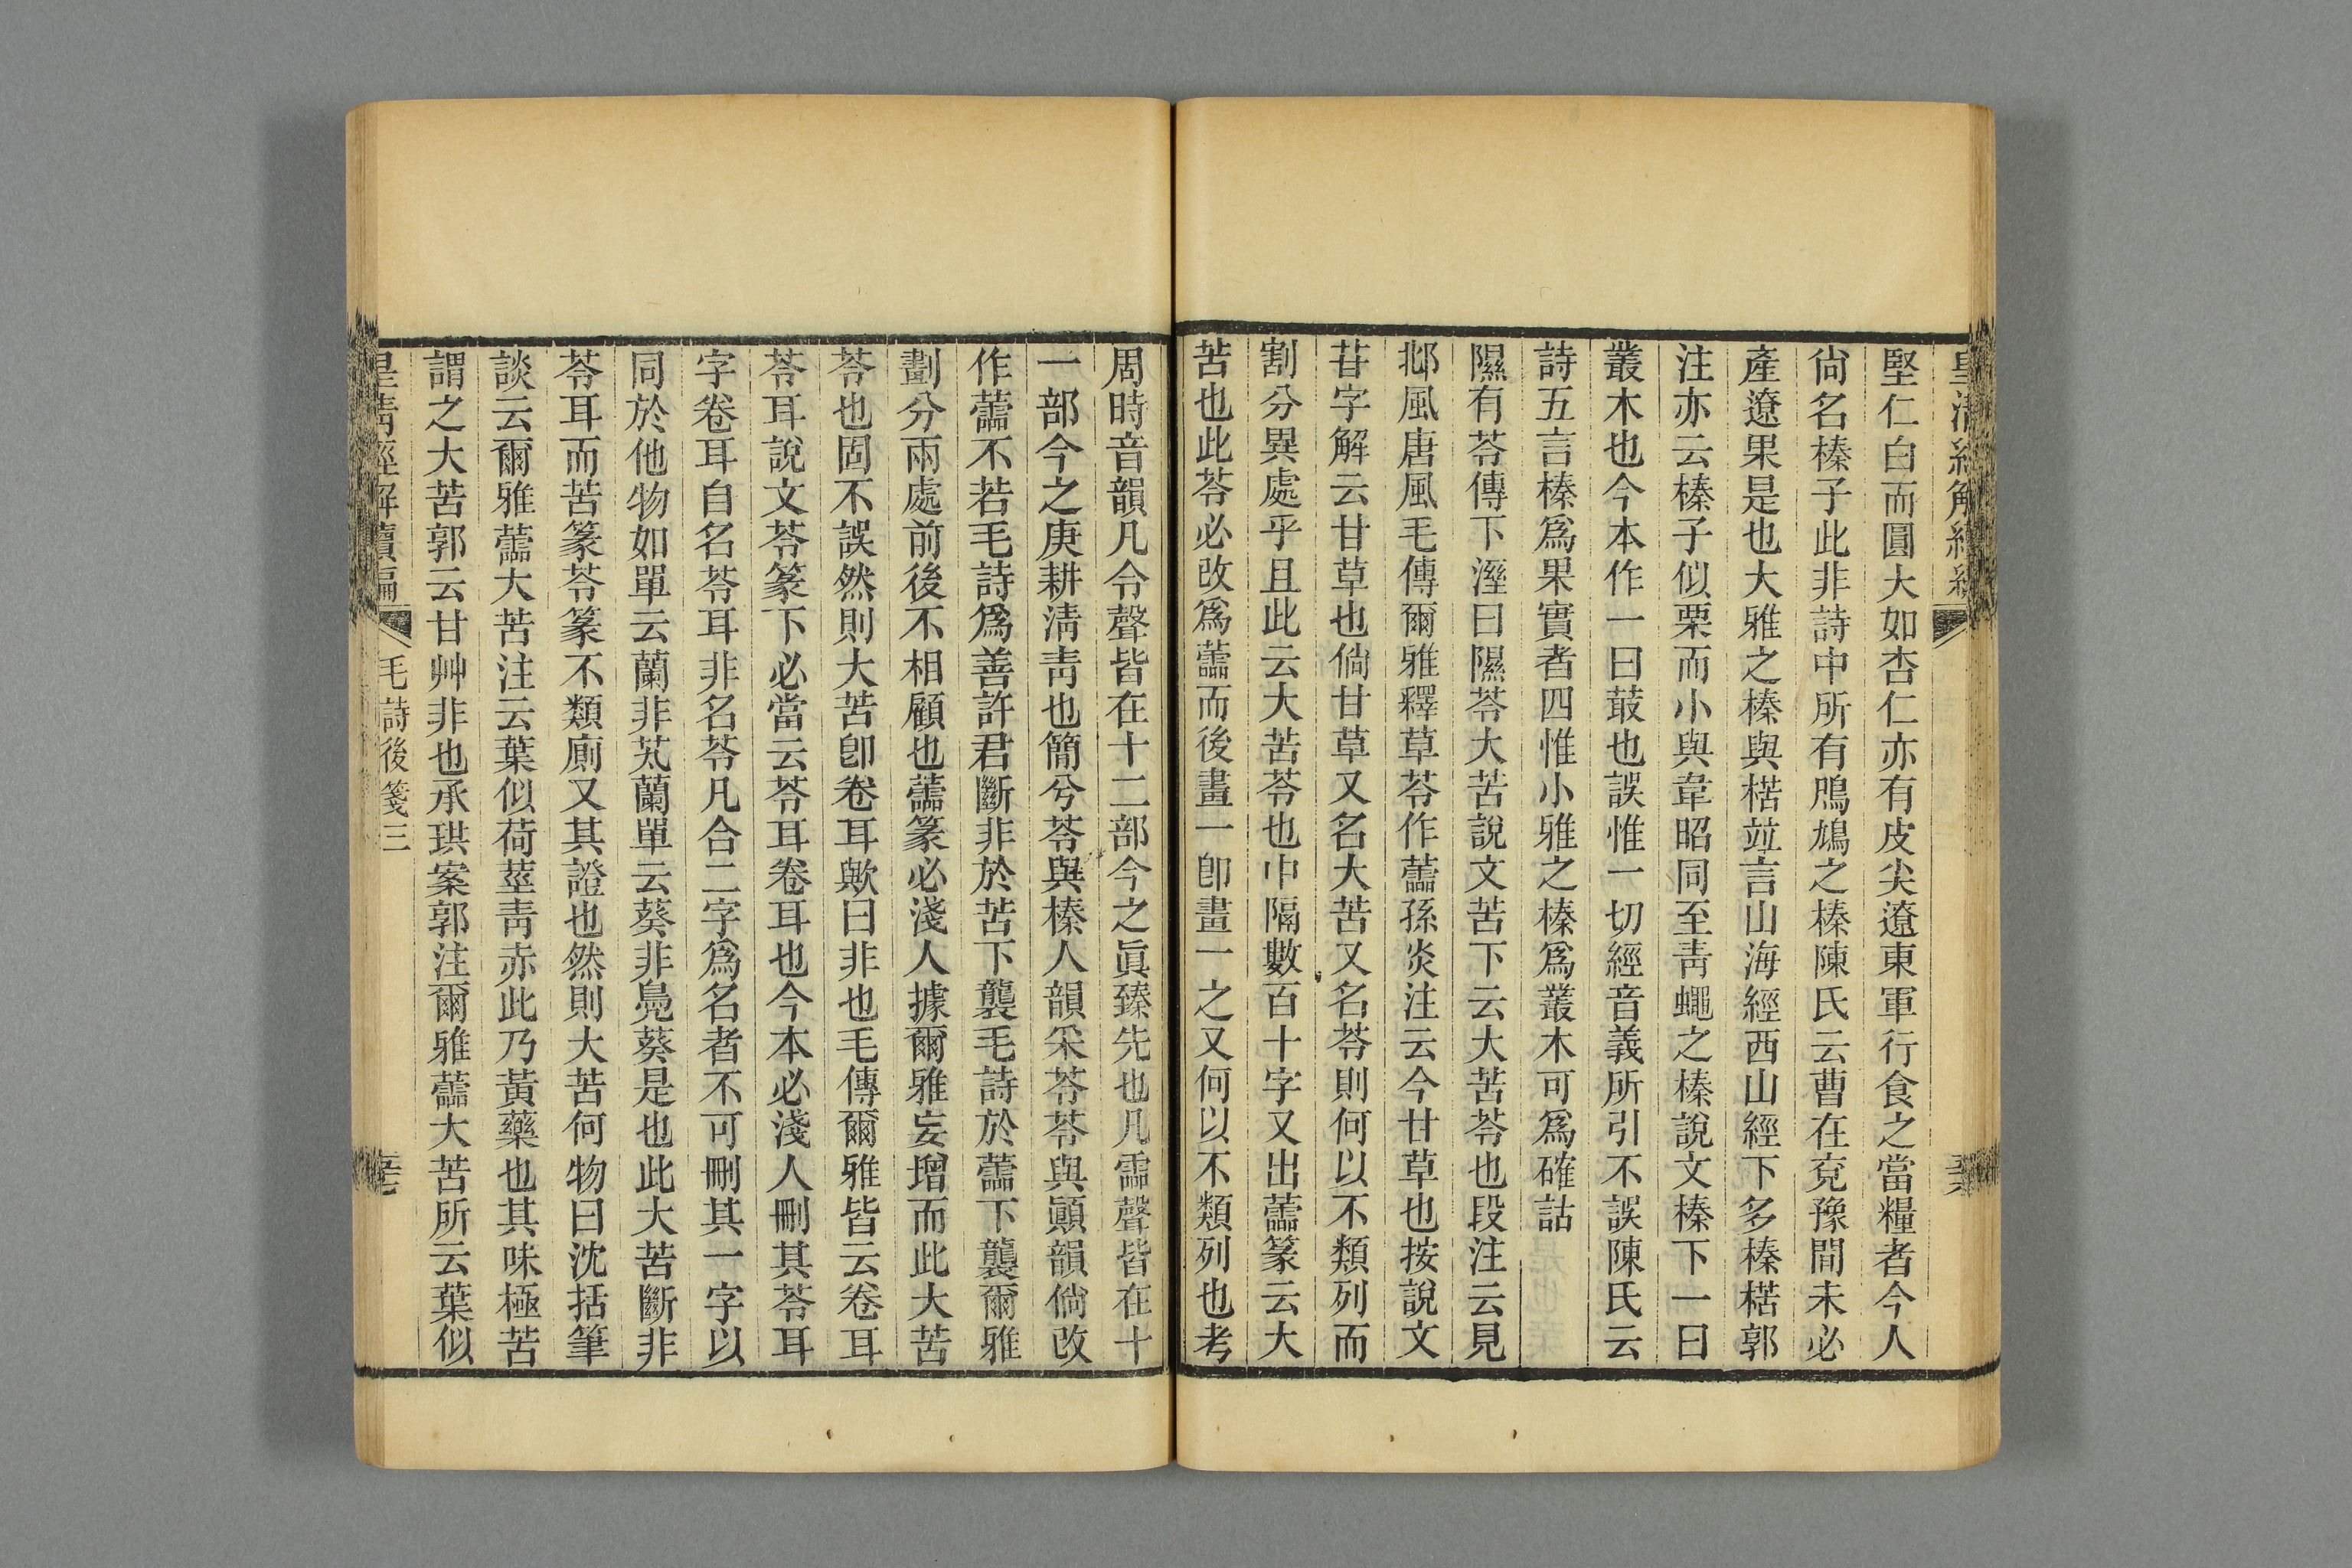 堅仁白而圓大如杏仁亦有皮尖遼東軍行食之當糧者今人
尙名榛子此非詩中所有鳲鳩之榛陳氏云曹在兗豫間未必
產遼果是也大雅之榛與楛竝言山海經西山經下多榛楛郭
注亦云榛子似栗而小與韋昭同至靑蠅之榛說文榛下一曰
叢木也今本作一曰菆也誤惟一切經音義所引不誤陳氏云
詩五言榛爲果實者四惟小雅之榛爲叢木可爲確詁
隰有苓傳下溼曰隰苓大苦說文苦下云大苦苓也段注云見
邶風唐風毛傳爾雅釋草苓作蘦孫炎注云今甘草也按說文
苷字解云甘草也倘甘草又名大苦又名苓則何以不類列而
割分異處乎且此云大苦苓也中隔數百十字又出蘦篆云大
苦也此苓必改爲蘦而後畫一卽畫一之又何以不類列也考
周時音韻凡令聲皆在十二部今之眞臻先也凡霝聲皆在十
一部今之庚耕淸靑也簡兮苓與榛人韻采苓苓與顚韻倘改
作蘦不若毛詩爲善許君斷非於苦下襲毛詩於蘦下襲爾雅
劃分兩處前後不相顧也蘦篆必淺人據爾雅妄增而此大苦
苓也固不誤然則大苦卽卷耳歟曰非也毛傳爾雅皆云卷耳
苓耳說文苓篆下必當云苓耳卷耳也今本必淺人刪其苓耳
字卷耳自名苓耳非名苓凡合二字爲名者不可刪其一字以
同於他物如單云蘭非芄蘭單云葵非鳧葵是也此大苦斷非
苓耳而苦篆苓篆不類廁又其證也然則大苦何物曰沈括筆
談云爾雅蘦大苦注云葉似荷莖靑赤此乃黃藥也其味極苦
謂之大苦郭云甘艸非也承珙案郭注爾雅蘦大苦所云葉似
毛詩後箋三